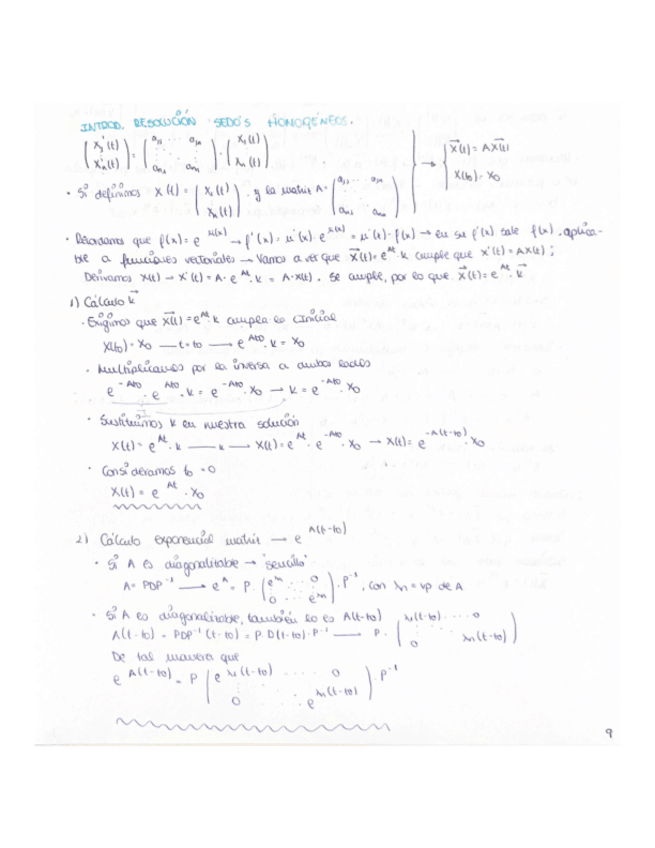 INTROD. RESOLUCIÓN SEDO'S HOMOGÉNEOS.
(x₁'(t) / xₙ'(t)) = (a₁₁ ... a₁ₙ / aₙ₁ ... aₙₙ) · (x₁(t) / xₙ(t)) } → { X⃗(t) = AX⃗(t)
X(t₀) = X₀
• Si definimos X(t) = (x₁(t) / xₙ(t)) · y la matriz A = (a₁₁ ... a₁ₙ / aₙ₁ ... aₙₙ)
• Recordamos que f(x) = e^μ(x) → f'(x) = μ'(x) · e^μ(x) = μ'(x) · f(x) → en su f'(x) sale f(x), aplica-
ble a funciones vectoriales → Vamos a ver que X⃗(t) = e^At · k cumple que x'(t) = AX(t);
Derivamos X(t) → X'(t) = A · e^At · k = A · X(t). Se cumple, por lo que X⃗(t) = e^At · k⃗
1) Cálculo k⃗
· Exigimos que X⃗(t) = e^At · k cumpla la C.Inicial
X(t₀) = X₀ — t = t₀ → e^At₀ · k = X₀
· Multiplicamos por la inversa a ambos lados
e^-At₀ · e^At₀ · k = e^-At₀ · X₀ → k = e^-At₀ X₀
I
· Sustituimos k en nuestra solución
X(t) = e^At · k — k → X(t) = e^At · e^-At₀ · X₀ → X(t) = e^-A(t-t₀) · X₀
· Consideramos t₀ = 0
X(t) = e^At · X₀
2) Cálculo exponencial matriz → e^A(t-t₀)
• Si A es diagonalizable → "sencillo"
A = PDP⁻¹ → e^A = P · (e^λ₁ ... 0 / 0 ... e^λₙ) · P⁻¹, con λₙ = vp de A
• Si A es diagonalizable, también lo es A(t-t₀)
A(t-t₀) = PDP⁻¹(t-t₀) = P D(t-t₀) · P⁻¹ → P · (λ₁(t-t₀) ... 0 / 0 λₙ(t-t₀))
De tal manera que
e^A(t-t₀) = P (e^λ₁(t-t₀) ... 0 / 0 e^λₙ(t-t₀)) · P⁻¹
9